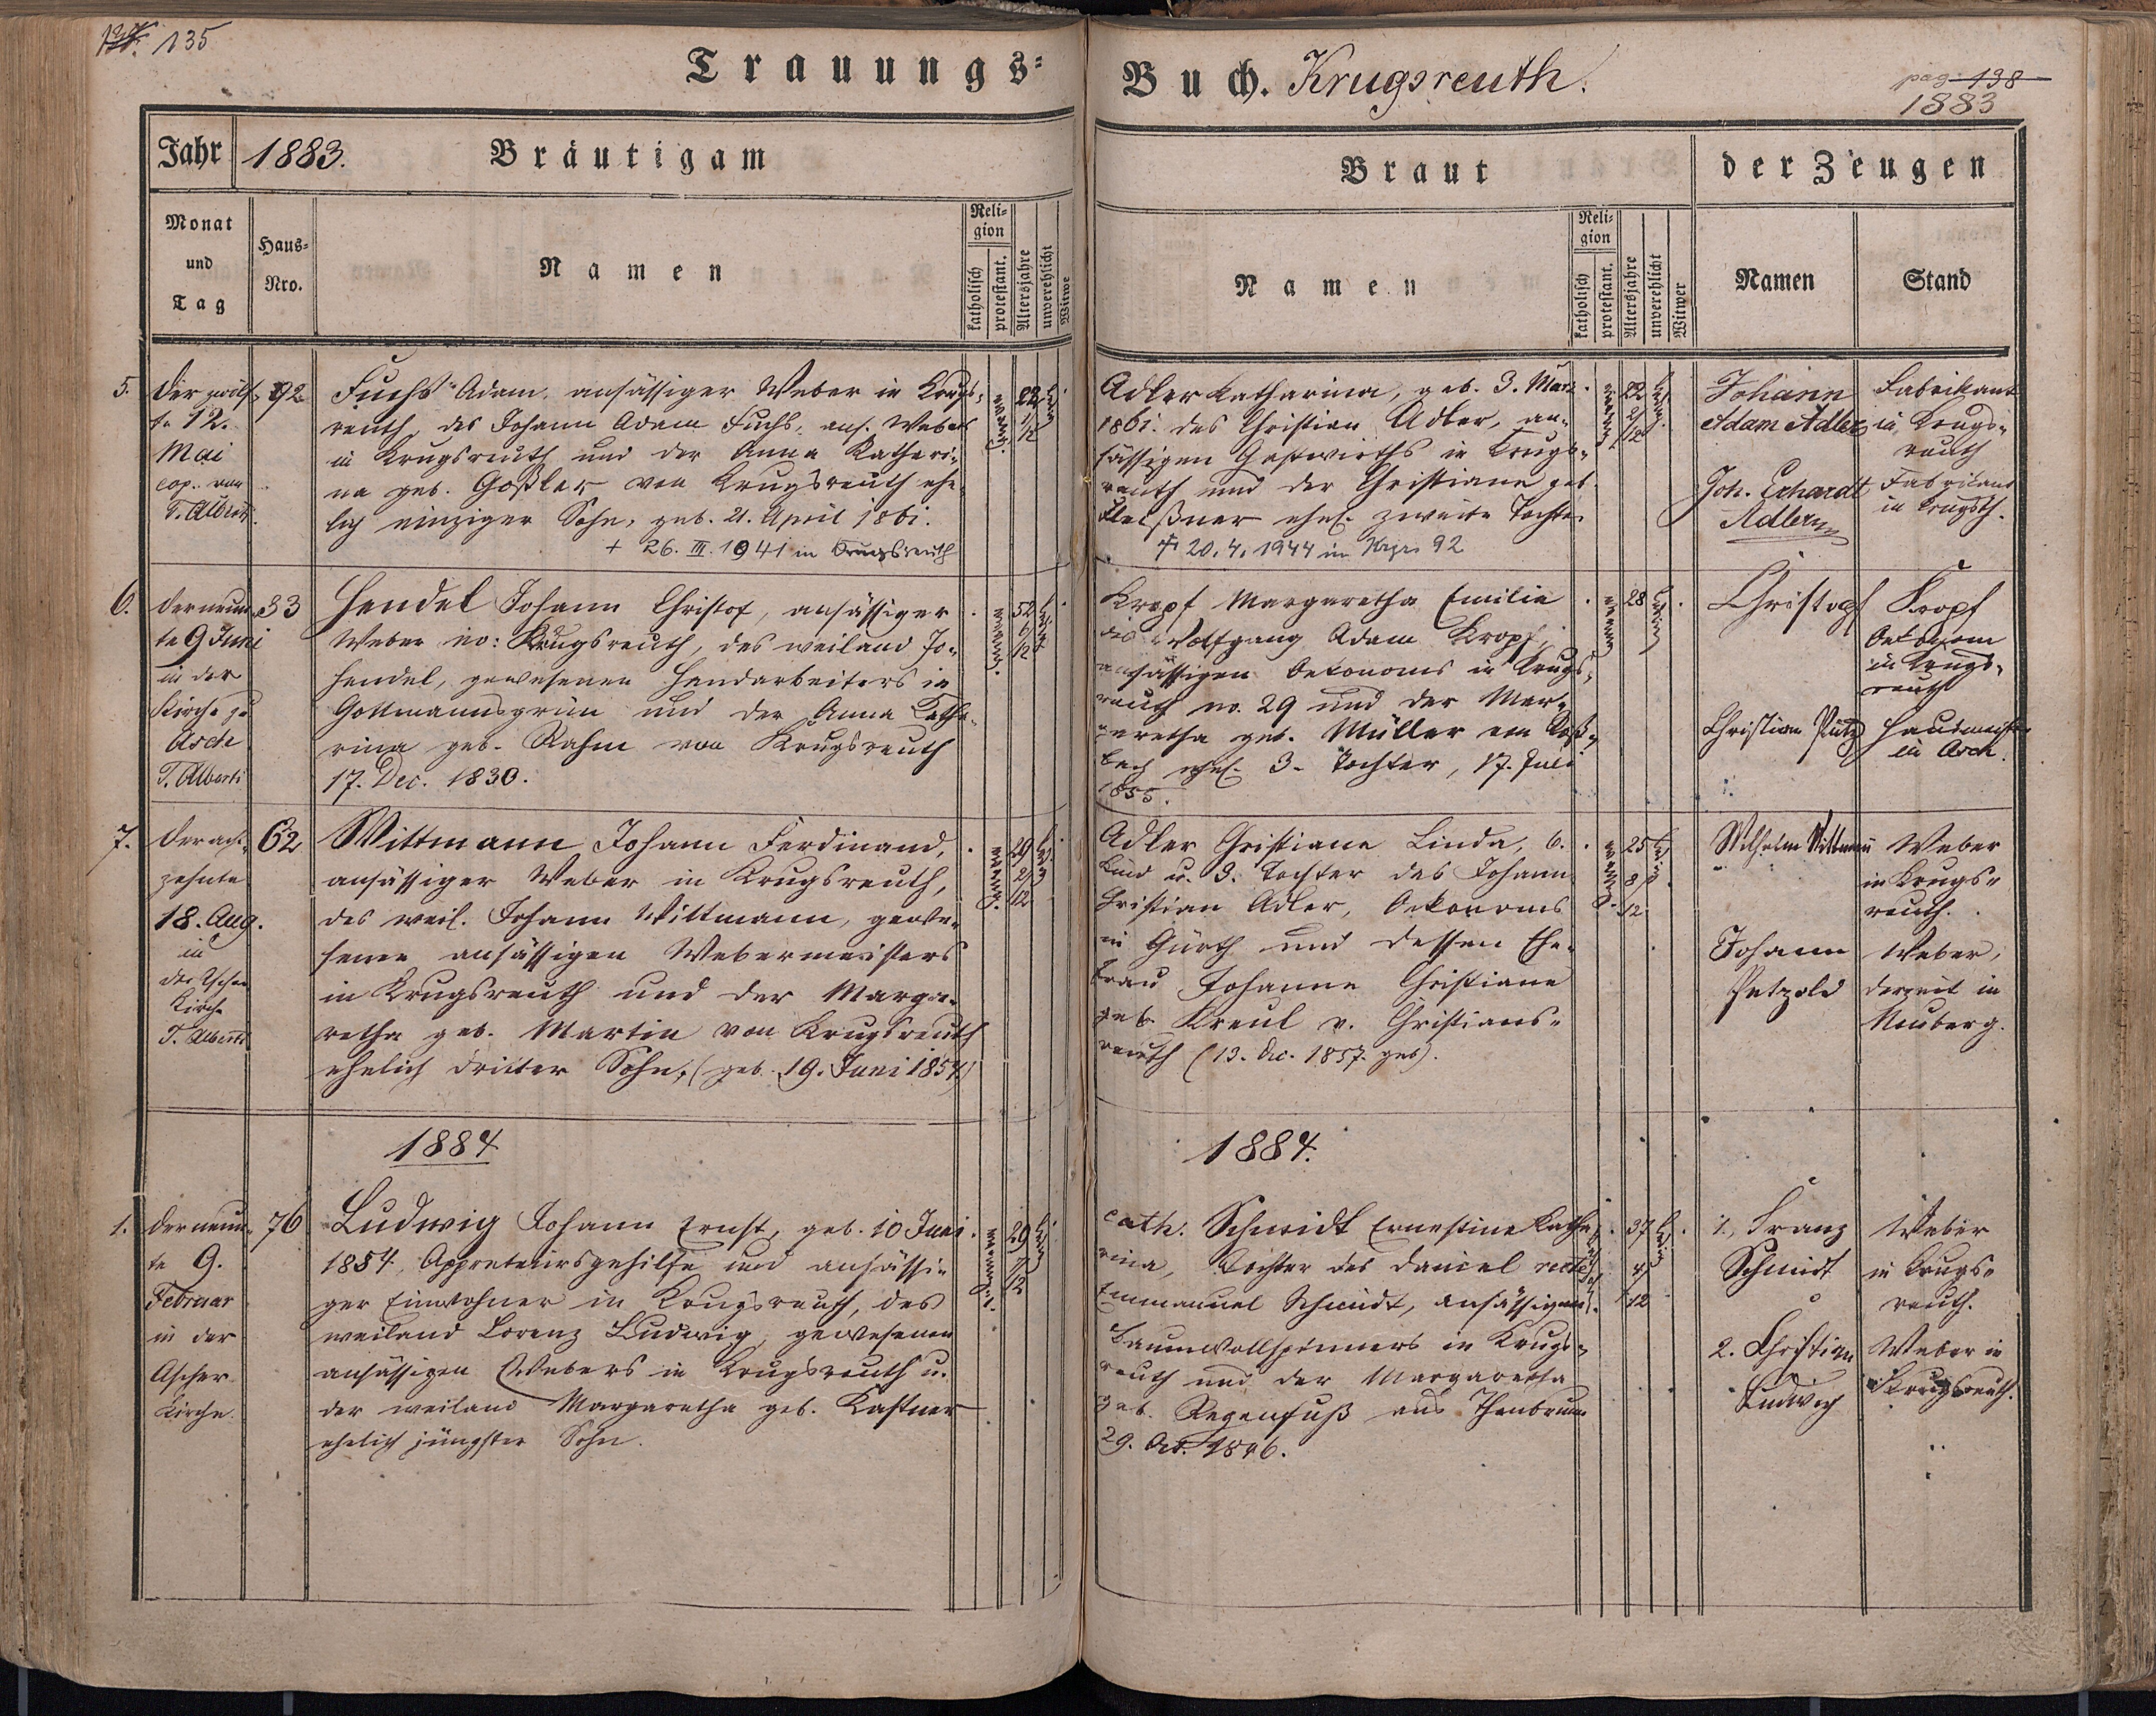 135
Trauungs-
Buch. Krugsreuth.
pag 138
1883
Jahr 1883. Bräutigam
Braut
der Zeugen
Monat und Tag
Haus-Nro.
Namen
Religion
katholisch
protestant.
Altersjahre
unverehlicht
Witwe
Namen
Religion
katholisch
protestant.
Altersjahre
unverehlicht
Witwer
Namen
Stand
5.
Der zwölf-
te 12.
Mai
cop. von
T. Alberti
92
Fuchs Adam, ansässiger Weber in Krugs-
reuth, des Johann Adam Fuchs, ans. Webers
in Krugsreuth und der Anna Kathari-
na geb. Goßler von Krugsreuth ehe-
lich einziger Sohn, geb. 21. April 1861.
+ 26. III. 1941 in Krugsreuth
22
1/12
Adler Katharina, geb. 3. März
1861. des Christian Adler, an-
sässigen Gastwirths in Krugs-
reuth und der Christiana geb.
ehel. zweite Tochter
+ 20. 4. 1944 in 92
22
2/12
Johann
Adam Adler
Fabrikant
in Krugs-
reuth
Joh. Erhardt
Adler
Fabrikant
in Krugsrth.
6.
Der neun-
te 9 Juni
in der
Kirche zu
Asch
T. Alberti
33
Hendel Johann Christof, ansässiger
Weber in Krugsreuth, des weiland Jo-
Hendel, gewesenen Handarbeiters in
Gottmannsgrün und der Anna Katha-
rina geb. Rahm von Krugsreuth
17. Dec. 1830.
52
6/12
Kropf Margaretha Emilie
des Wolfgang Adam Kropf,
ansässigen Oekonoms in Krugs-
reuth no. 29 und der Mar-
garetha geb. Müller von Roß-
bach ehel. 3. Tochter, 17. Juli
1855.
28
Christoph Kropf
Oekonom
in Krugs-
reuth
Christian Putz
Hausmeister
in Asch.
7.
Der acht-
zehnte
18. Aug.
in
der Ascher
Kirche
T. Alberti
62
Wittmann Johann Ferdinand,
ansässiger Weber in Krugsreuth,
des weil. Johann Wittmann, gewe-
senen ansässigen Webermeisters
in Krugsreuth und der Marga-
retha geb. Martin von Krugsreuth
ehelich dritter Sohn, (geb. 19. Juni 1854)
29
2/12
Adler Christiane Linda, 6.
Kind u. 3. Tochter des Johann
Christian Adler, Oekonoms
in Gürth und dessen Ehe-
frau Johanne Christiane
geb. Kreul v. Christians-
reuth (13. Dec. 1857. geb).
25
8/12
Wilhelm Wittmann
Weber
in Krugs-
reuth.
Johann
Petzold
Weber,
derzeit in
Neuberg.
1884
1884.
1.
Der neun-
te 9.
Februar
in der
Ascher
Kirche.
76
Ludwig Johann Ernst, geb. 10 Juni
1854, Appreteursgehilfe und ansässi-
ger Einwohner in Krugsreuth, des
weiland Lorenz Ludwig, gewesenen
ansässigen Webers in Krugsreuth u.
der weiland Margaretha geb. Kastner
ehelich jüngster Sohn.
29
7/12
cath. Schmidt Ernestine Katha-
rina, Tochter des Daniel recte
Emmanuel Schmidt, ansässigen
Baumwollspinners in Krugs-
reuth und der Margaretha
geb. Regenfuß aus Thonbrunn
29. Oct. 1846.
37
4/12
1., Franz
Schmidt
Weber
in Krugs-
reuth.
2. Christian
Ludwig
Weber in
Krugsreuth.